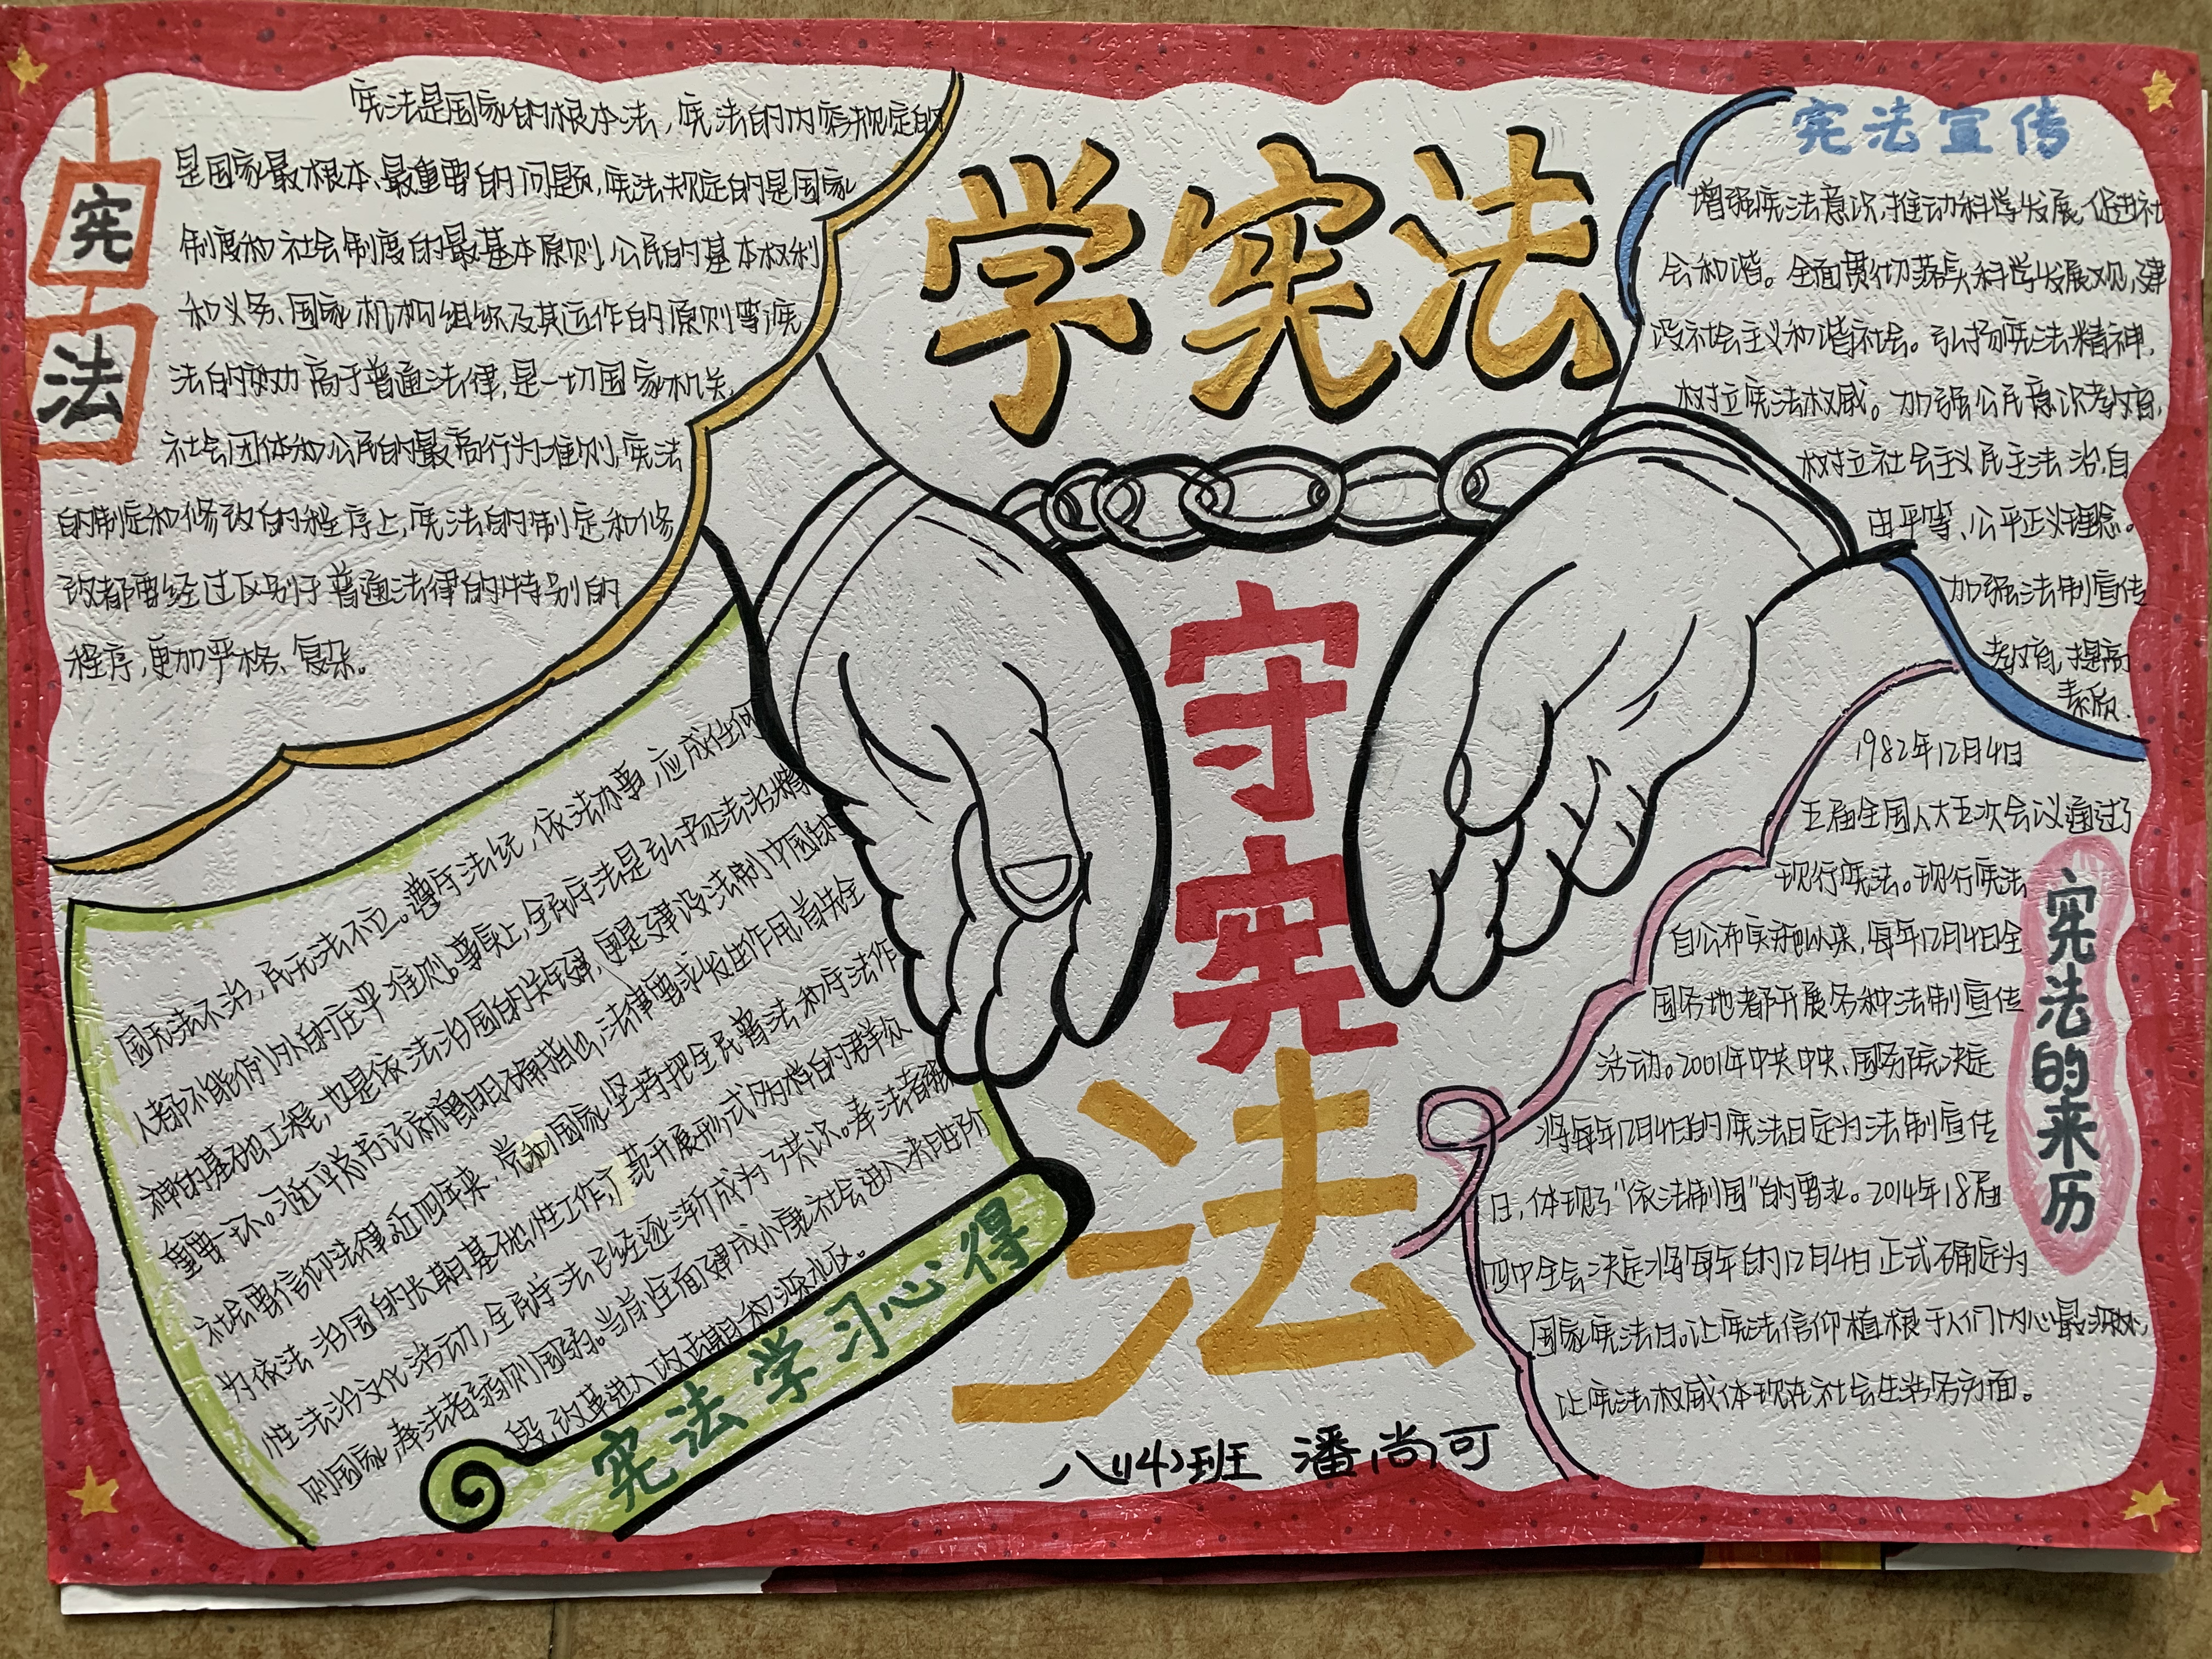 学宪法
守宪法
宪法
宪法是国家的根本法，宪法的内容规定的
是国家最根本、最重要的问题，宪法规定的是国家
制度和社会制度的最基本原则，公民的基本权利
和义务、国家机构组织及其运作的原则等宪
法的效力高于普通法律，是一切国家机关、
社会团体和公民的最高行为准则，宪法
的制定和修改的程序上，宪法的制定和修
改都要经过区别于普通法律的特别的
程序，更加严格、复杂。
宪法宣传
增强宪法意识，推动科学发展，促进社
会和谐。全面贯彻落实科学发展观，建
设社会主义和谐社会。弘扬宪法精神，
树立宪法权威。加强公民意识教育，
树立社会主义民主法治，自
由平等、公平正义理念。
加强法制宣传
教育，提高
素质.
宪法的来历
1982年12月4日
五届全国人大五次会议通过了
现行宪法。现行宪法
自公布实施以来，每年12月4日全
国各地都开展各种法制宣传
活动。2001年中共中央、国务院决定
将每年12月4日的宪法日定为法制宣传
日，体现了"依法制国"的要求。2014年18届
四中全会决定将每年的12月4日正式确定为
国家宪法日。让宪法信仰植根于人们内心最深处，
让宪法权威体现在社会生活各方面。
宪法学习心得
国无法不治，民无法不立。遵守法纪，依法办事，应成任何
人都不能例外的在乎准则。事实上，全民守法是弘扬法治精
神的基础工程，也是依法治国的关键，更是建设法制中国的
重要一环。习近平总书记就曾旧日不再指出，法律要求发出作用，首先全
社会要信仰法律。近四年来，党和国家坚持把全民普法和守法作
为依法治国的长期基础性工作，广范开展形式为档的群众
性法治文化活动，全民守法已经逐渐成为了共识。奉法者强
则国家，奉法者弱则国弱。当前，全面建成小康社会进入决胜阶
段，改革进入攻坚期和深水区。
八(14)班 潘尚可